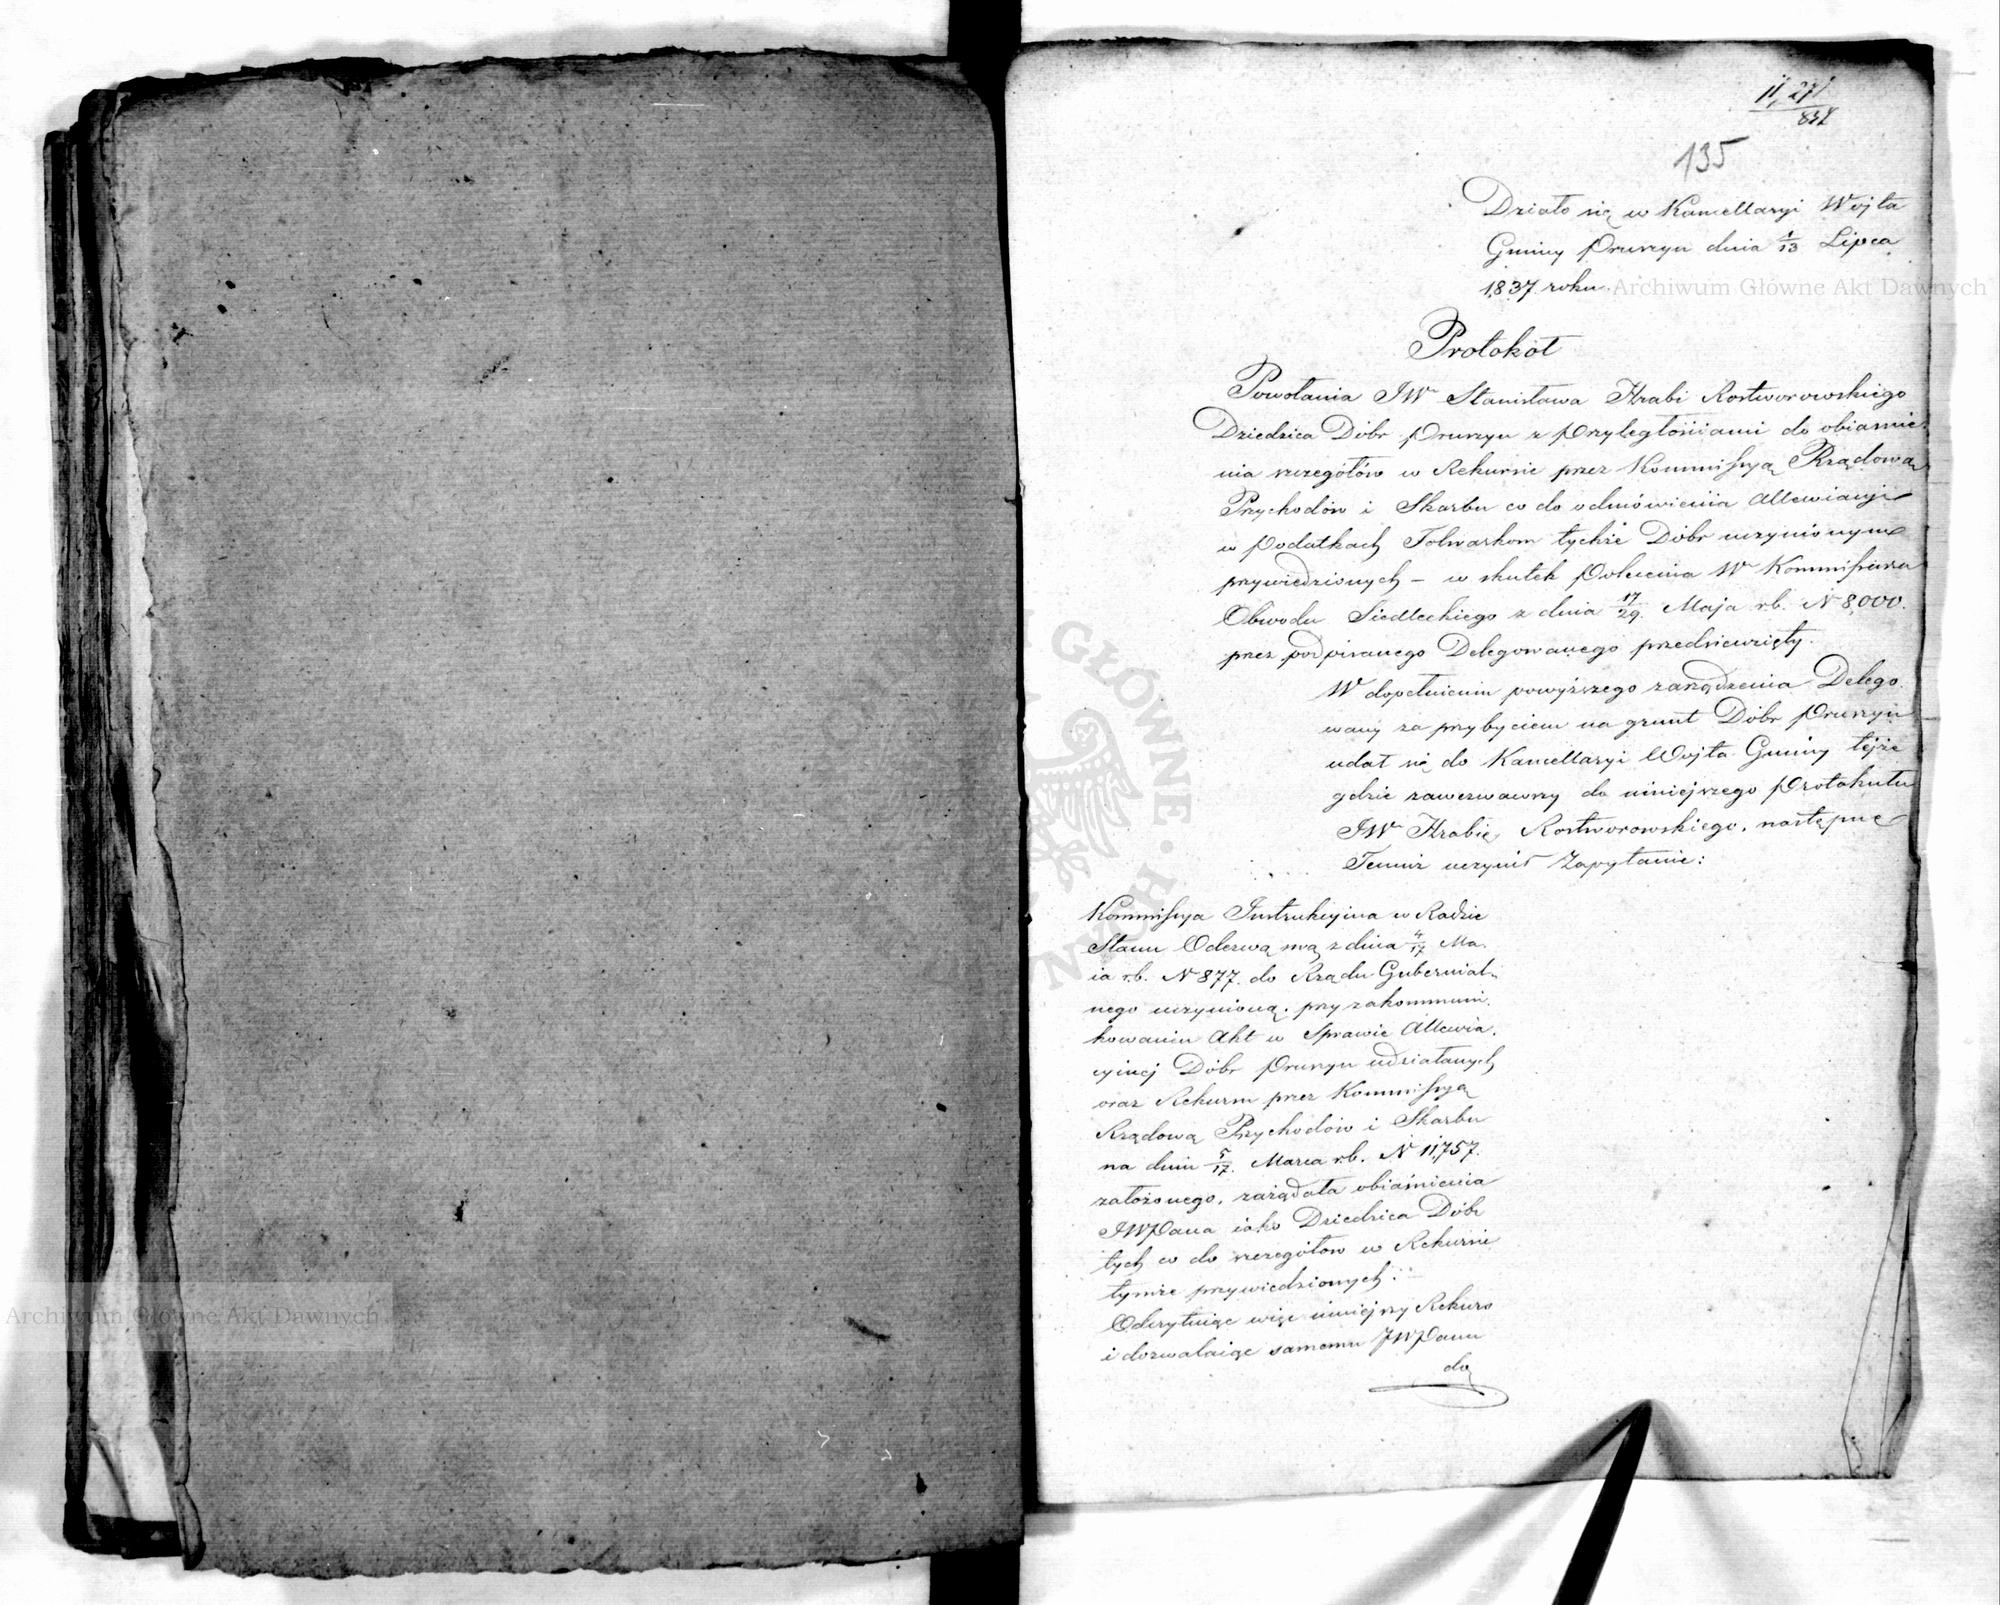 11,271
837
135
Działo się w Kancellaryi Wójta
Gminy Pruszyn dnia 1/13 Lipca
1837 roku.
Protokół
Powołania JW Stanisława Hrabi Rostworowskiego
Dziedzica Dóbr Pruszyn z Przyległościami do obiaśnie
nia szczegółów w Rekursie przez Kommissyą Rządową
Przychodów i Skarbu co do odmówienia Allewiacyi
w Podatkach Folwarkom tychże Dóbr uczynionym
przywiedzionych – w skutek Polecenia W Kommissarza
Obwodu Siedleckiego z dnia 17/29 Maja r.b. N 8,000.
przez podpisanego Delegowanego przedsięwzięty.
W dopełnieniu powyższego zarządzenia Delego
wany za przybyciem na grunt Dóbr Pruszyn
udał się do Kancellaryi Wójta Gminy tejże
gdzie zawezwawszy do niniejszego Protokułu
JW Hrabię Rostworowskiego, następne
Temuż uczynił Zapytanie:
Kommissya Instrukcyjna w Radzie
Stanu Odezwą swą z dnia 4/17 Ma.
ia r.b. N 877. do Rządu Gubernial-
nego uczynioną. przy zakommuni.
kowaniu Akt w Sprawie Allewia.
cyjnej Dóbr Pruszyn udziałanych
oraz Rekursu przez Kommissyą
Rządową Przychodów i Skarbu
na dniu 5/17. Marca r.b. N 11,757.
założonego, zażądała obiaśnienia
JWPana iako Dziedzica Dóbr
tych co do szczegółów w Rekursie
tymże przywiedzionych.
Odczytuiąc więc niniejszy Rekurs
i dozwalaiąc samemu JWPanu
do
Archiwum Główne Akt Dawnych
Archiwum Główne Akt Dawnych